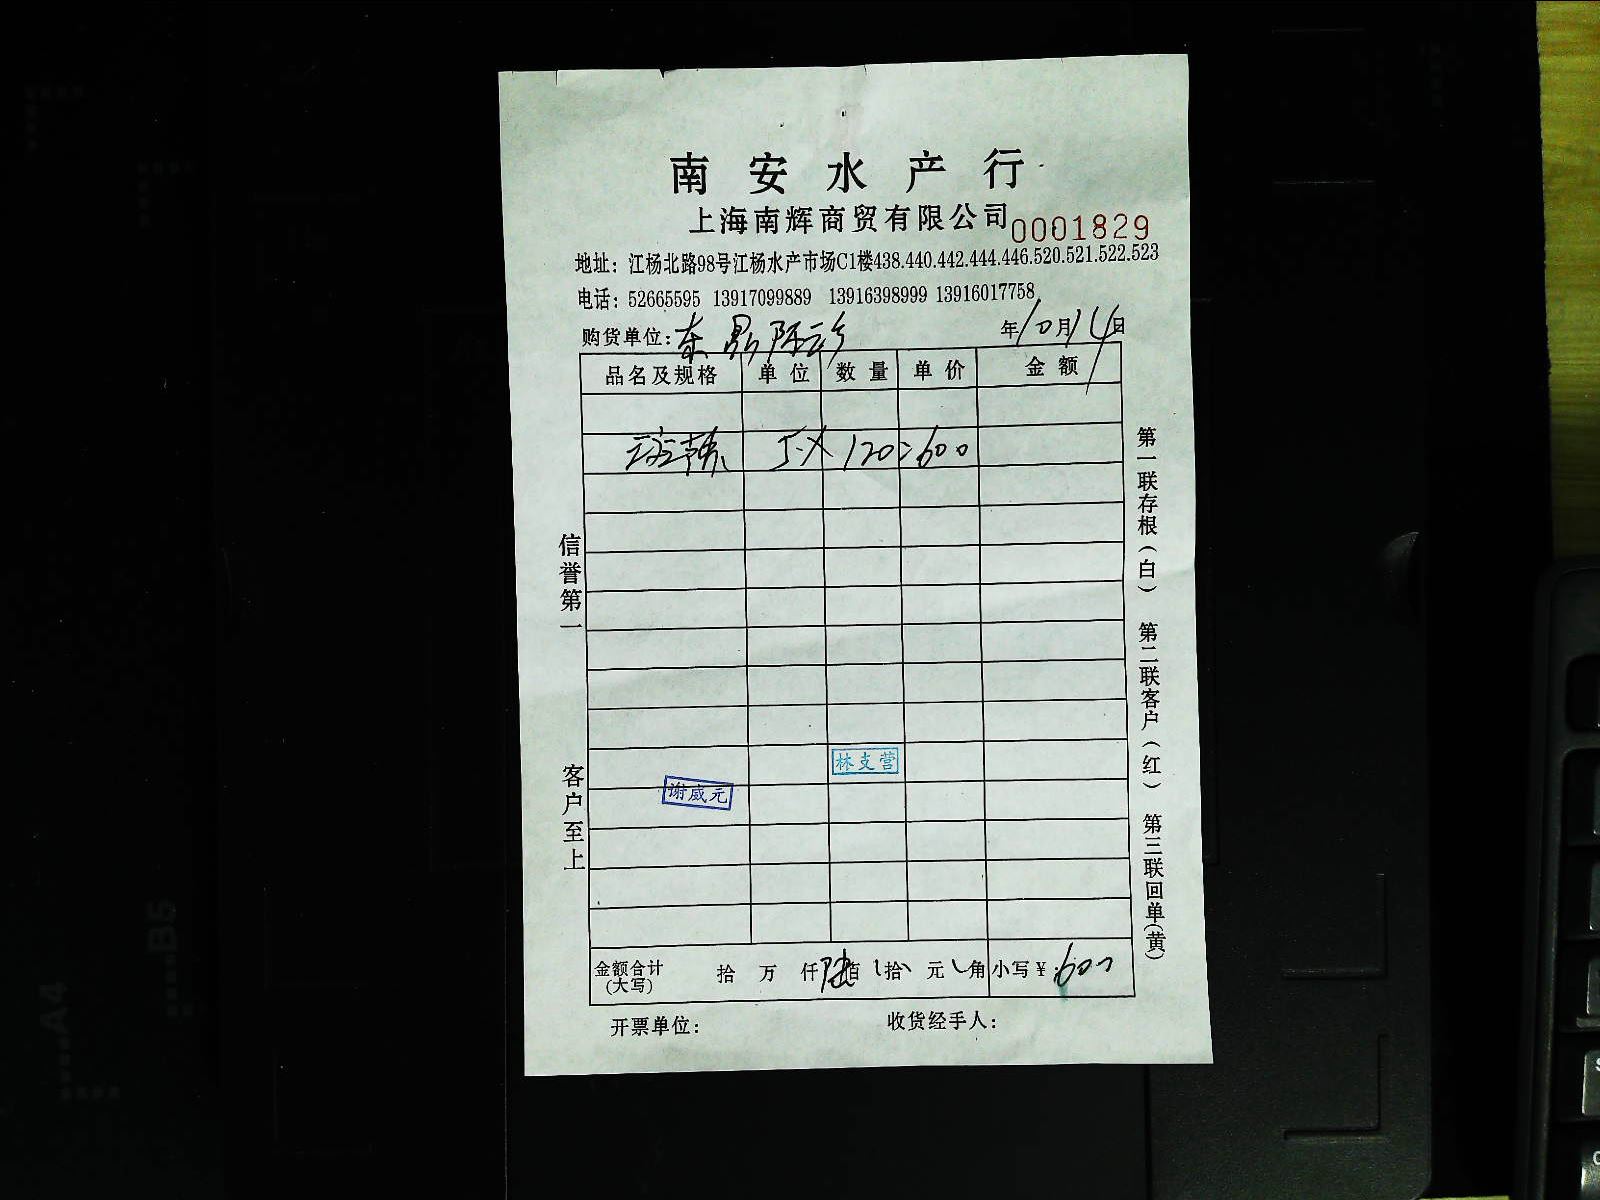 南安水产行
上海南辉商贸有限公司 0001829
地址：江杨北路98号江杨水产市场C1楼438.440.442.444.446.520.521.522.523
电话：52665595 13917099889 13916398999 13916017758
购货单位：东 年10月14日
品名及规格 单位 数量 单价 金额
5 × 120 = 600
林支营
谢威元
金额合计(大写) 拾 万 仟陆佰 拾 元 角 小写￥：600
开票单位： 收货经手人：
信誉第一 客户至上
第一联存根(白) 第二联客户(红) 第三联回单(黄)